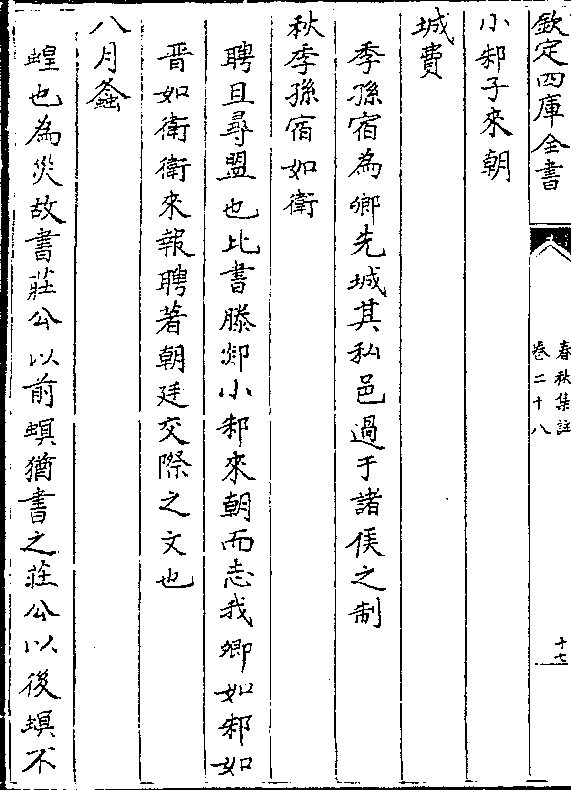 欽定四庫全書
春秋集註
卷二十八
十七
小邾子來朝
城費
季孫宿為卿先城其私邑過于諸侯之制
秋季孫宿如衛
聘且尋盟也比書滕郯小邾來朝而志我卿如邾如
晉如衛衛來報聘著朝廷交際之文也
八月螽
蝗也為災故書莊公以前螟猶書之莊公以後螟不